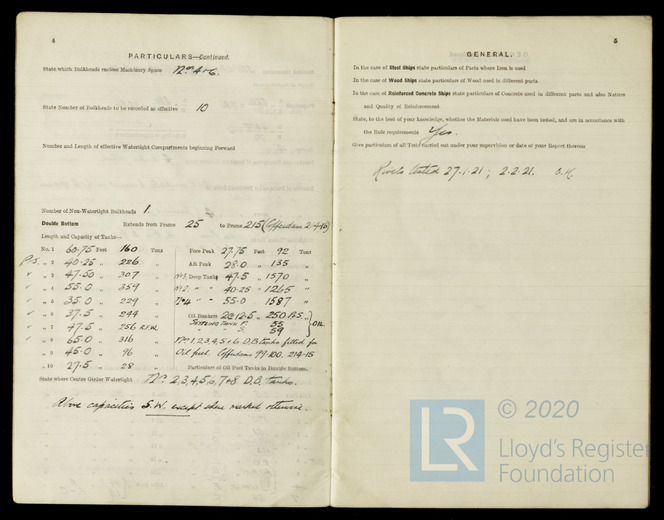 4
PARTICULARS—Continued.
State which Bulkheads enclose Machinery Space Nos 4 & 6.
State Number of Bulkheads to be recorded as effective 10
Number and Length of effective Watertight Compartments beginning Forward
Number of Non-Watertight Bulkheads 1.
Double Bottom Extends from Frame 25 to Frame 215 (Cofferdam 214-15)
Length and Capacity of Tanks—
No. 1 60.75 Feet 160 Tons Fore Peak 27.75 Feet 92 Tons
P.S. „ 2 40.25 „ 226 „ Aft Peak 28.0 „ 135 „
„ 3 47.50 „ 307 „ No 3. Deep Tanks 47.5 „ 1570 „
„ 4 55.0 „ 359 „ No 2. „ „ 40.25 „ 1265 „
„ 5 35.0 „ 229 „ No 4 „ „ 55.0 „ 1587 „
„ 6 37.5 „ 244 „ Oil Bunkers 12.5 „ 250 P.S. „
„ 7 47.5 „ 256 R.F.W. Settling Tank P. 55 } OIL
„ 8 65.0 „ 316 „ „ S. 59
„ 9 45.0 „ 96 „ Nos 1, 2, 3, 4, 5 & 6. D.B. tanks fitted for
„ 10 27.5 „ 28 „ Oil fuel. Cofferdams 99-100, 214-15
Particulars of Oil Fuel Tanks in Double Bottom.
State where Centre Girder Watertight Nos 2, 3, 4, 5, 6, 7 & 8 D.B. tanks.
Above capacities S.W. except where marked otherwise.
5
GENERAL.
In the case of Steel Ships state particulars of Parts where Iron is used
In the case of Wood Ships state particulars of Wood used in different parts
In the case of Reinforced Concrete Ships state particulars of Concrete used in different parts and also Nature
and Quality of Reinforcement
State, to the best of your knowledge, whether the Materials used have been tested, and are in accordance with
the Rule requirements Yes.
Give particulars of all Tests carried out under your supervision or date of your Report thereon
Rivets tested 27.1.21; 2.2.21.
© 2020
LR
Lloyd's Register
Foundation